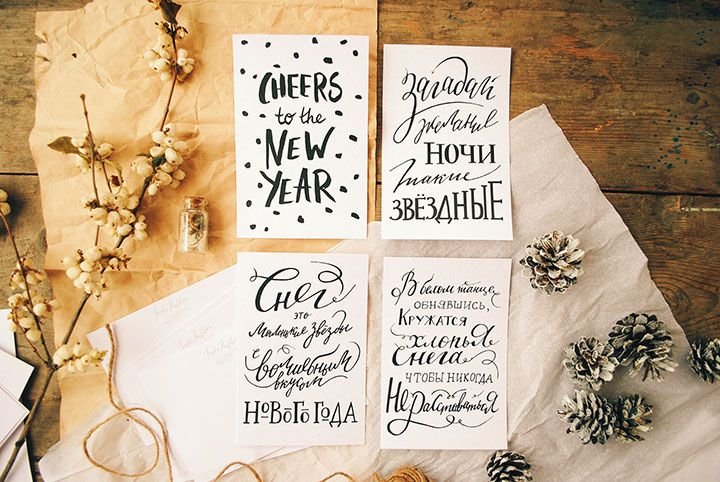 CHEERS
to the
NEW
YEAR
Загадай
желание
НОЧИ
такие
ЗВЁЗДНЫЕ
Снег
это
маленькие звёзды
с волшебным
вкусом
Нового года
В белом танце
обнявшись,
Кружатся
хлопья
Снега
чтобы никогда
Не расставаться